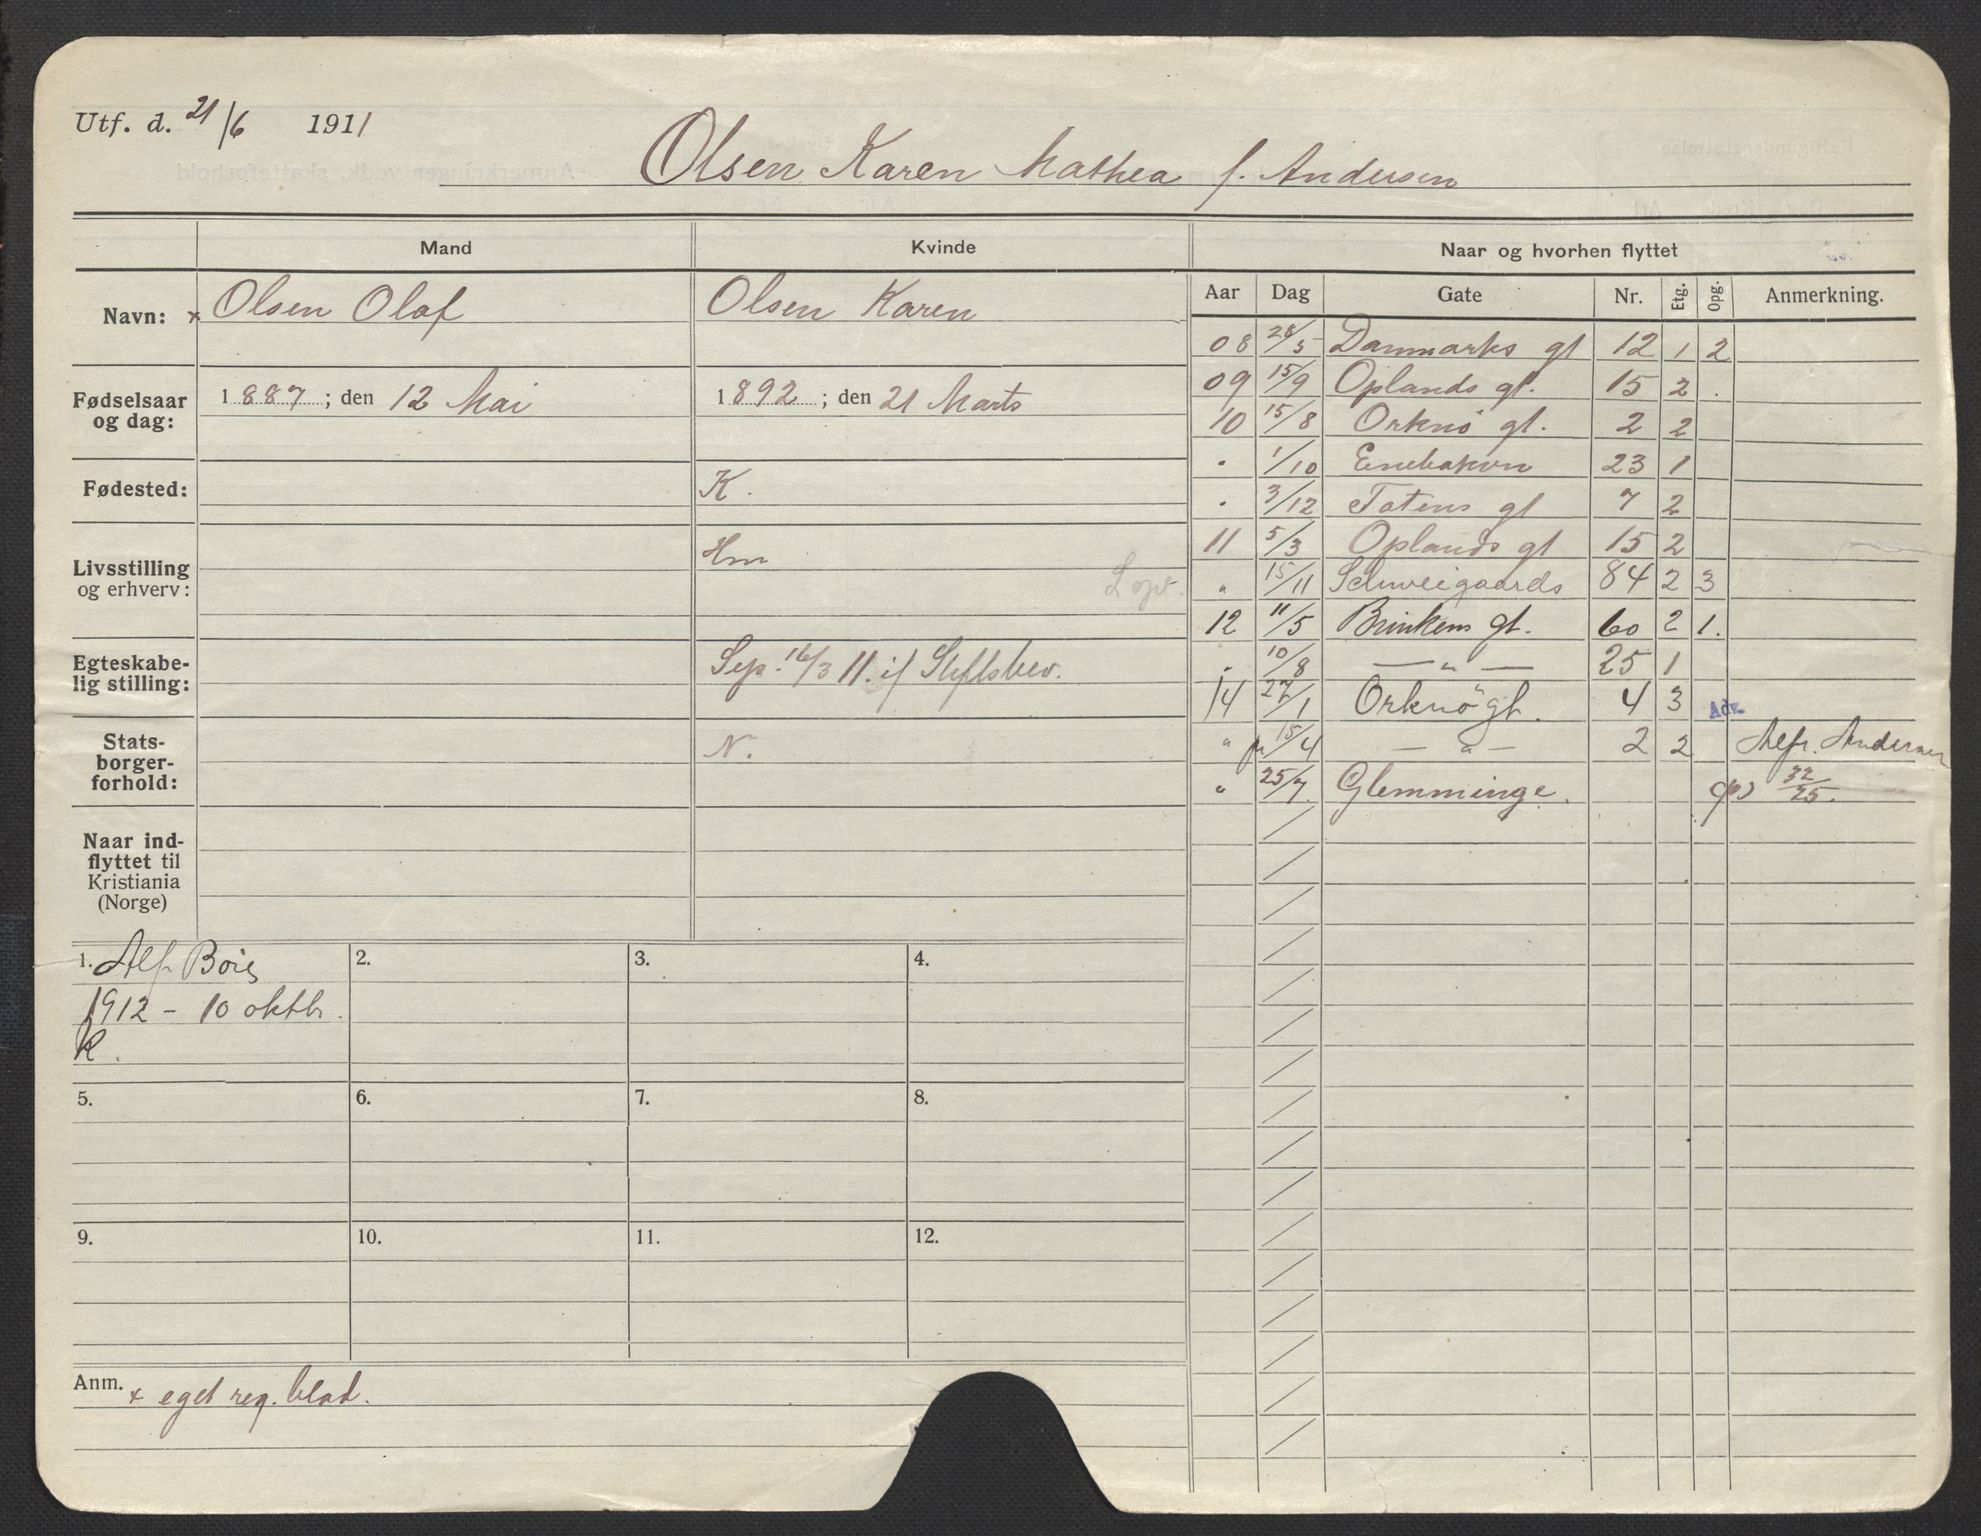 Utf. d. 21/6 1911
Olsen Karen Mathea f. Andersen
Mand Kvinde Naar og hvorhen flyttet
Navn: x Olsen Olaf Olsen Karen
Fødselsaar og dag: 1887; den 12 Mai 1892; den 21 Marts
Fødested: K.
Livsstilling og erhverv: Hm
Egteskabe-
lig stilling: Sep. 16/3 11. if Stiftsbev.
Stats-
borger-
forhold: N.
Naar ind-
flyttet til
Kristiania
(Norge)
Aar Dag Gate Nr. Etg. Opg. Anmerkning.
08 28/5 Danmarks gt 12 1 2
09 15/9 Oplands gt. 15 2 .
10 15/8 Orknö gt. 2 2
" 1/10 Enebakvn 23 1
" 3/12 Totens gt 7 2
11 5/3 Oplands gt 15 2
" 15/11 Schweigaards 84 2 3
12 11/5 Brinkens gt. 60 2 1.
" 10/8 — " — 25 1
14 27/1 Orknö gt. 4 3 Adr.
" 15/4 — " — 2 2 Alfr. Andersen
" 25/7 Glemminge. 32/25.
1. Alf Boie
1912 - 10 oktbr.
K.
2.
3.
4.
5.
6.
7.
8.
9.
10.
11.
12.
Anm. x eget reg. blad.